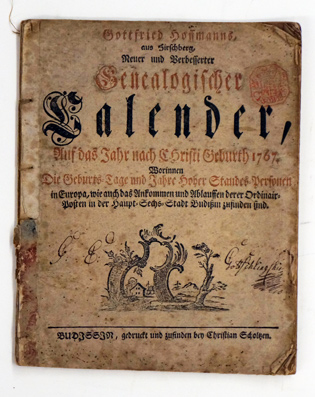 Gottfried Hoffmanns,
aus Hirschberg,
Neuer und Verbesserter
Genealogischer
Calender,
Auf das Jahr nach Christi Geburth 1767.
Worinnen
Die Geburts-Tage und Jahre Hoher Standes-Personen
in Europa, wie auch das Ankommen und Ablauffen derer Ordinair-
Posten in der Haupt-Sechs-Stadt Budißin zufinden sind.
G. E.
BUDISSIN, gedruckt und zufinden bey Christian Scholtzen.